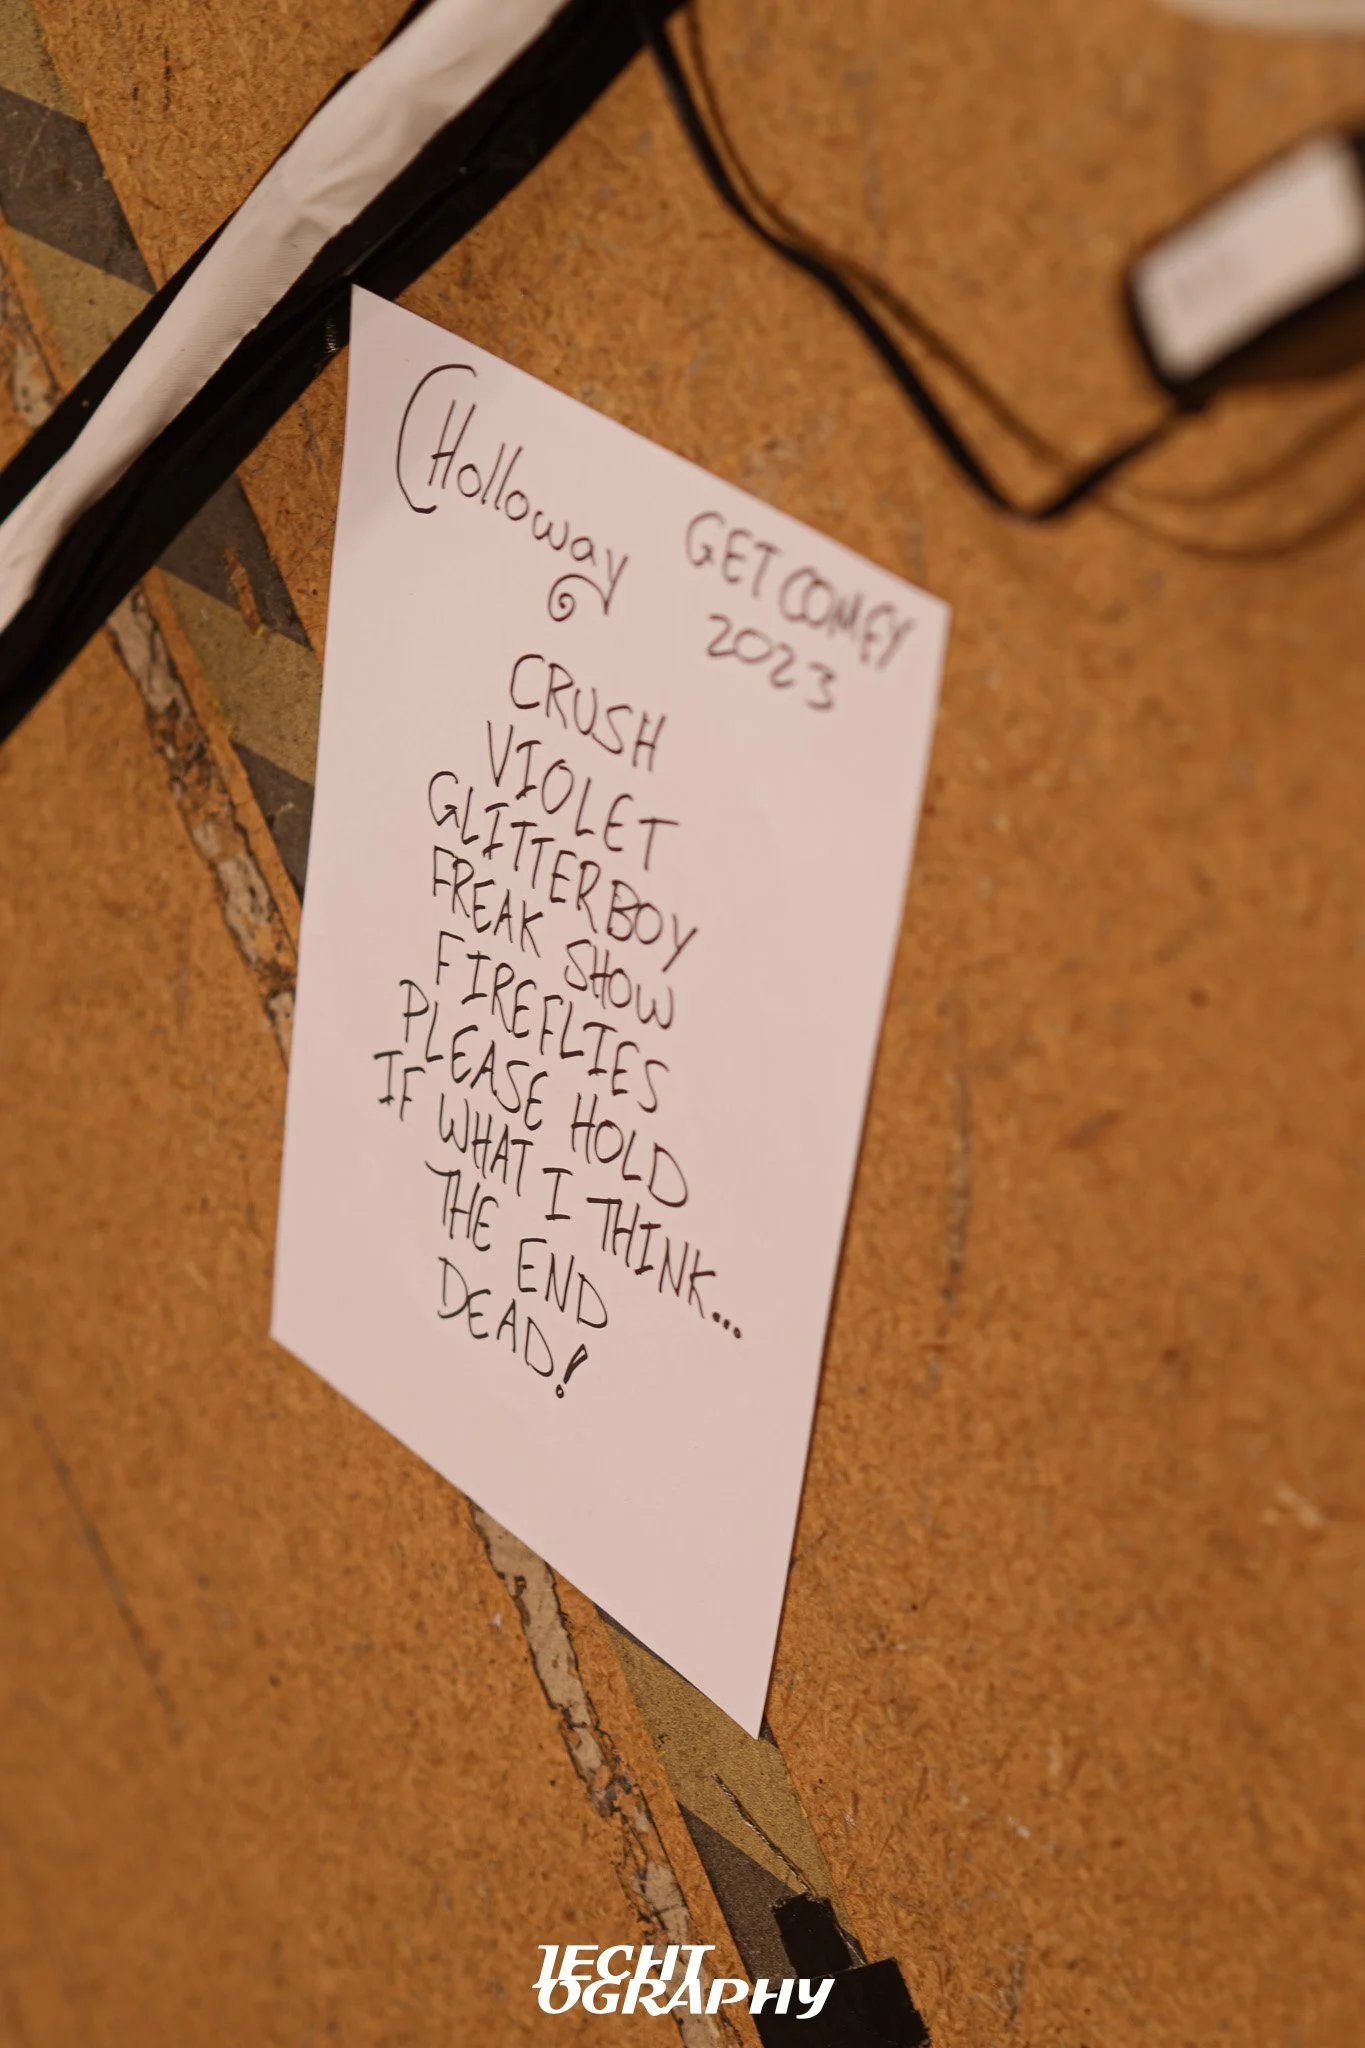 Holloway
GET COMFY
2023
CRUSH
VIOLET
GLITTERBOY
FREAK SHOW
FIREFLIES
PLEASE HOLD
IF WHAT I THINK...
THE END
DEAD!
1ECHT
OGRAPHY